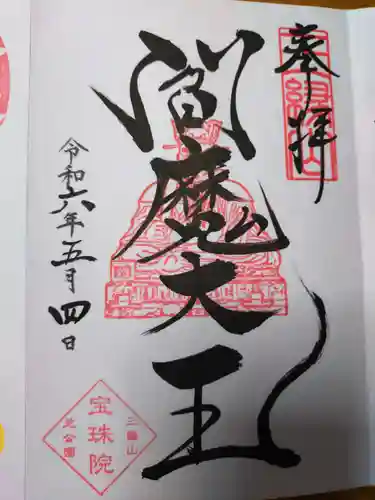 奉拝
閻魔大王
令和六年五月四日
三縁山
宝珠院
芝公園